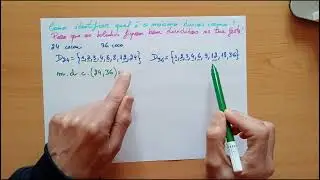 Como identificar qual é o máximo divisor comum?
Para que os bolinhos fiquem bem divididos na tua festa!
24 cacau 36 coco
D24 = {1,2,3,4,6,8,12,24} D36 = {1,2,3,4,6,9,12,18,36}
m.d.c.(24,36)=